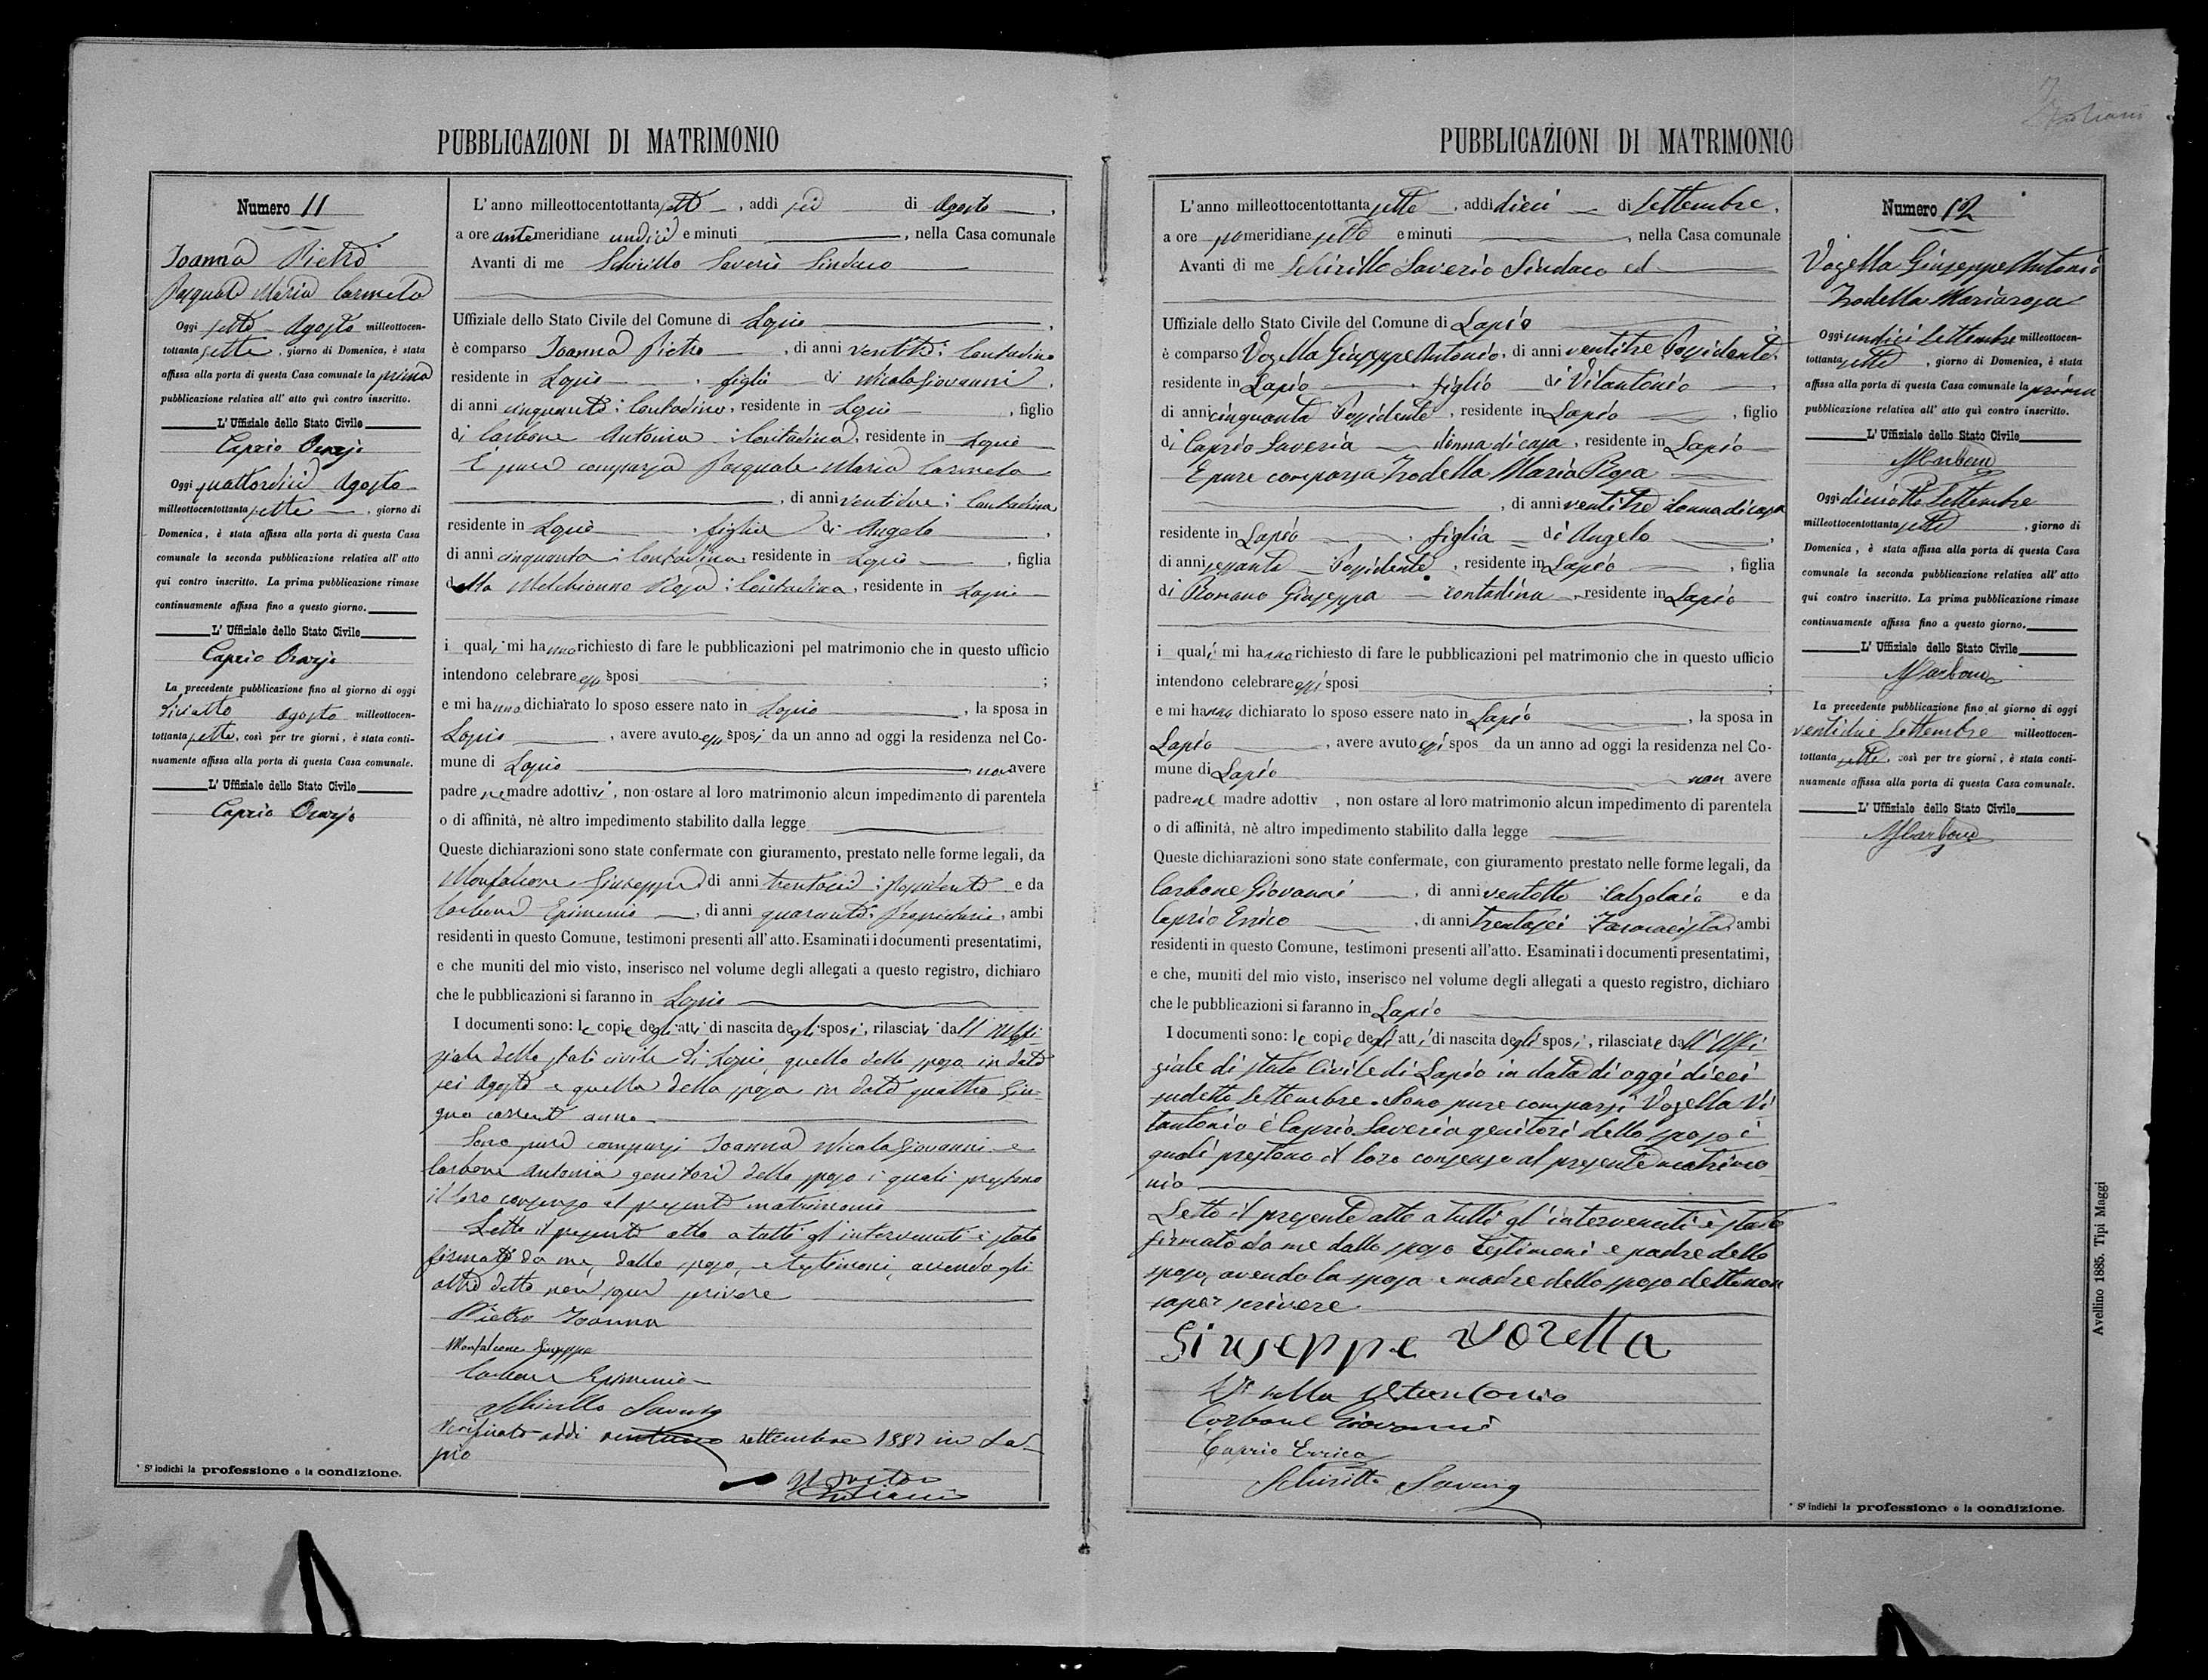 PUBBLICAZIONI DI MATRIMONIO
Numero 11
Ioanna Pietro
Pasquale Maria Carmela
Oggi sette Agosto milleottocen-
tottanta sette, giorno di Domenica, è stata
affissa alla porta di questa Casa comunale la prima
pubblicazione relativa all' atto quì contro inscritto.
L' Uffiziale dello Stato Civile
Caprio Orazio
Oggi quattordici Agosto
milleottocentottanta sette, giorno di
Domenica, è stata affissa alla porta di questa Casa
comunale la seconda pubblicazione relativa all' atto
qui contro inscritto. La prima pubblicazione rimase
continuamente affissa fino a questo giorno.
L' Uffiziale dello Stato Civile
Caprio Orazio
La precedente pubblicazione fino al giorno di oggi
diciotto Agosto milleottocen-
tottanta sette, così per tre giorni, è stata conti-
nuamente affissa alla porta di questa Casa comunale.
L' Uffiziale dello Stato Civile
Caprio Orazio
* S' indichi la professione o la condizione.
L' anno milleottocentottanta sette, addi sei di Agosto,
a ore antemeridiane undici e minuti , nella Casa comunale
Avanti di me Schirillo Saverio Sindaco
Uffiziale dello Stato Civile del Comune di Lapio,
è comparso Ioanna Pietro, di anni ventitre: Contadino
residente in Lapio, figlio di Nicola Giovanni,
di anni cinquanta: Contadino, residente in Lapio, figlio
di Carbone Antonia: Contadina, residente in Lapio
È pure comparsa Pasquale Maria Carmela
, di anni ventidue: Contadina
residente in Lapio, figlia di Angelo,
di anni cinquanta: Contadino, residente in Lapio, figlia
della Melchionno Rosa: Contadina, residente in Lapio
i quali mi hanno richiesto di fare le pubblicazioni pel matrimonio che in questo ufficio
intendono celebrare essi sposi ;
e mi hanno dichiarato lo sposo essere nato in Lapio, la sposa in
Lapio, avere avuto essi sposi da un anno ad oggi la residenza nel Co-
mune di Lapio, non avere
padre ne madre adottivi, non ostare al loro matrimonio alcun impedimento di parentela
o di affinità, nè altro impedimento stabilito dalla legge
Queste dichiarazioni sono state confermate con giuramento, prestato nelle forme legali, da
Monfalcone Giuseppe, di anni trentasei: Possidente e da
Carbone Epimenio, di anni quaranta: Proprietario, ambi
residenti in questo Comune, testimoni presenti all' atto. Esaminati i documenti presentatimi,
e che muniti del mio visto, inserisco nel volume degli allegati a questo registro, dichiaro
che le pubblicazioni si faranno in Lapio
I documenti sono: le copie degli atti di nascita degli sposi, rilasciati dall' Uffi-
ziale dello stato civile di Lapio, quello dello sposo in data
sei Agosto e quella della sposa in data quattro Giu-
gno corrente anno
Sono pure comparsi Ioanna Nicola Giovanni e
Carbone Antonia genitori dello sposo i quali prestano
il loro consenso al presente matrimonio
Letto il presente atto a tutti gl' intervenuti è stato
firmato da me, dallo sposo, e testimoni, avendo gli
altri detto non saper scrivere
Pietro Ioanna
Monfalcone Giuseppe
Carbone Epimenio
Schirillo Saverio
Verificato addi ventuno settembre 1887 in La-
pio
Il Pretore
PUBBLICAZIONI DI MATRIMONIO
L' anno milleottocentottanta sette, addi dieci di Settembre,
a ore pomeridiane sette e minuti , nella Casa comunale
Avanti di me Schirillo Saverio Sindaco ed
Uffiziale dello Stato Civile del Comune di Lapio,
è comparso Vozella Giuseppe Antonio, di anni ventitre Possidente,
residente in Lapio, figlio di Vitantonio,
di anni cinquanta Possidente, residente in Lapio, figlio
di Caprio Saveria donna di casa, residente in Lapio
E pure comparsa Trodella Maria Rosa
, di anni ventitre donna di casa
residente in Lapio, figlia di Angelo,
di anni sessanta Possidente, residente in Lapio, figlia
di Romano Giuseppa contadina, residente in Lapio
i quali mi hanno richiesto di fare le pubblicazioni pel matrimonio che in questo ufficio
intendono celebrare essi sposi ;
e mi hanno dichiarato lo sposo essere nato in Lapio, la sposa in
Lapio, avere avuto essi spos da un anno ad oggi la residenza nel Co-
mune di Lapio non avere
padre ne madre adottiv , non ostare al loro matrimonio alcun impedimento di parentela
o di affinità, nè altro impedimento stabilito dalla legge
Queste dichiarazioni sono state confermate, con giuramento prestato nelle forme legali, da
Carbone Giovanni, di anni ventotto Calzolaio e da
Caprio Errico, di anni trentasei Farmacista, ambi
residenti in questo Comune, testimoni presenti all'atto. Esaminati i documenti presentatimi,
e che, muniti del mio visto, inserisco nel volume degli allegati a questo registro, dichiaro
che le pubblicazioni si faranno in Lapio
I documenti sono: le copie degli atti di nascita degli sposi, rilasciate dall' Uffi-
ziale di stato Civile di Lapio in data di oggi dieci
sudetto Settembre. Sono pure comparsi Vozella Vi-
tantonio e Caprio Saveria genitori dello sposo i
quali prestano il loro consenso al presente matrimo-
nio
Letto il presente atto a tutti gl' intervenuti è stato
firmato da me dallo sposo testimoni e padre dello
sposo, avendo la sposa e madre dello sposo detto non
saper scrivere
Giuseppe Vozella
Vozella Vitantonio
Carbone Giovanni
Caprio Errico
Schirillo Saverio
Numero 12
Vozella Giuseppe Antonio
Trodella Mariarosa
Oggi undici Settembre milleottocen-
tottanta sette, giorno di Domenica, è stata
affissa alla porta di questa Casa comunale la prima
pubblicazione relativa all' atto quì contro inscritto.
L' Uffiziale dello Stato Civile
MCarbone
Oggi dieciotto Settembre
milleottocentottanta sette, giorno di
Domenica, è stata affissa alla porta di questa Casa
comunale la seconda pubblicazione relativa all' atto
qui contro inscritto. La prima pubblicazione rimase
continuamente affissa fino a questo giorno.
L' Uffiziale dello Stato Civile
MCarbone
La precedente pubblicazione fino al giorno di oggi
ventidue Settembre milleottocen-
tottanta sette, così per tre giorni, è stata conti-
nuamente affissa alla porta di questa Casa comunale.
L' Uffiziale dello Stato Civile
MCarbone
* S' indichi la professione o la condizione.
Avellino 1885. Tipi Maggi